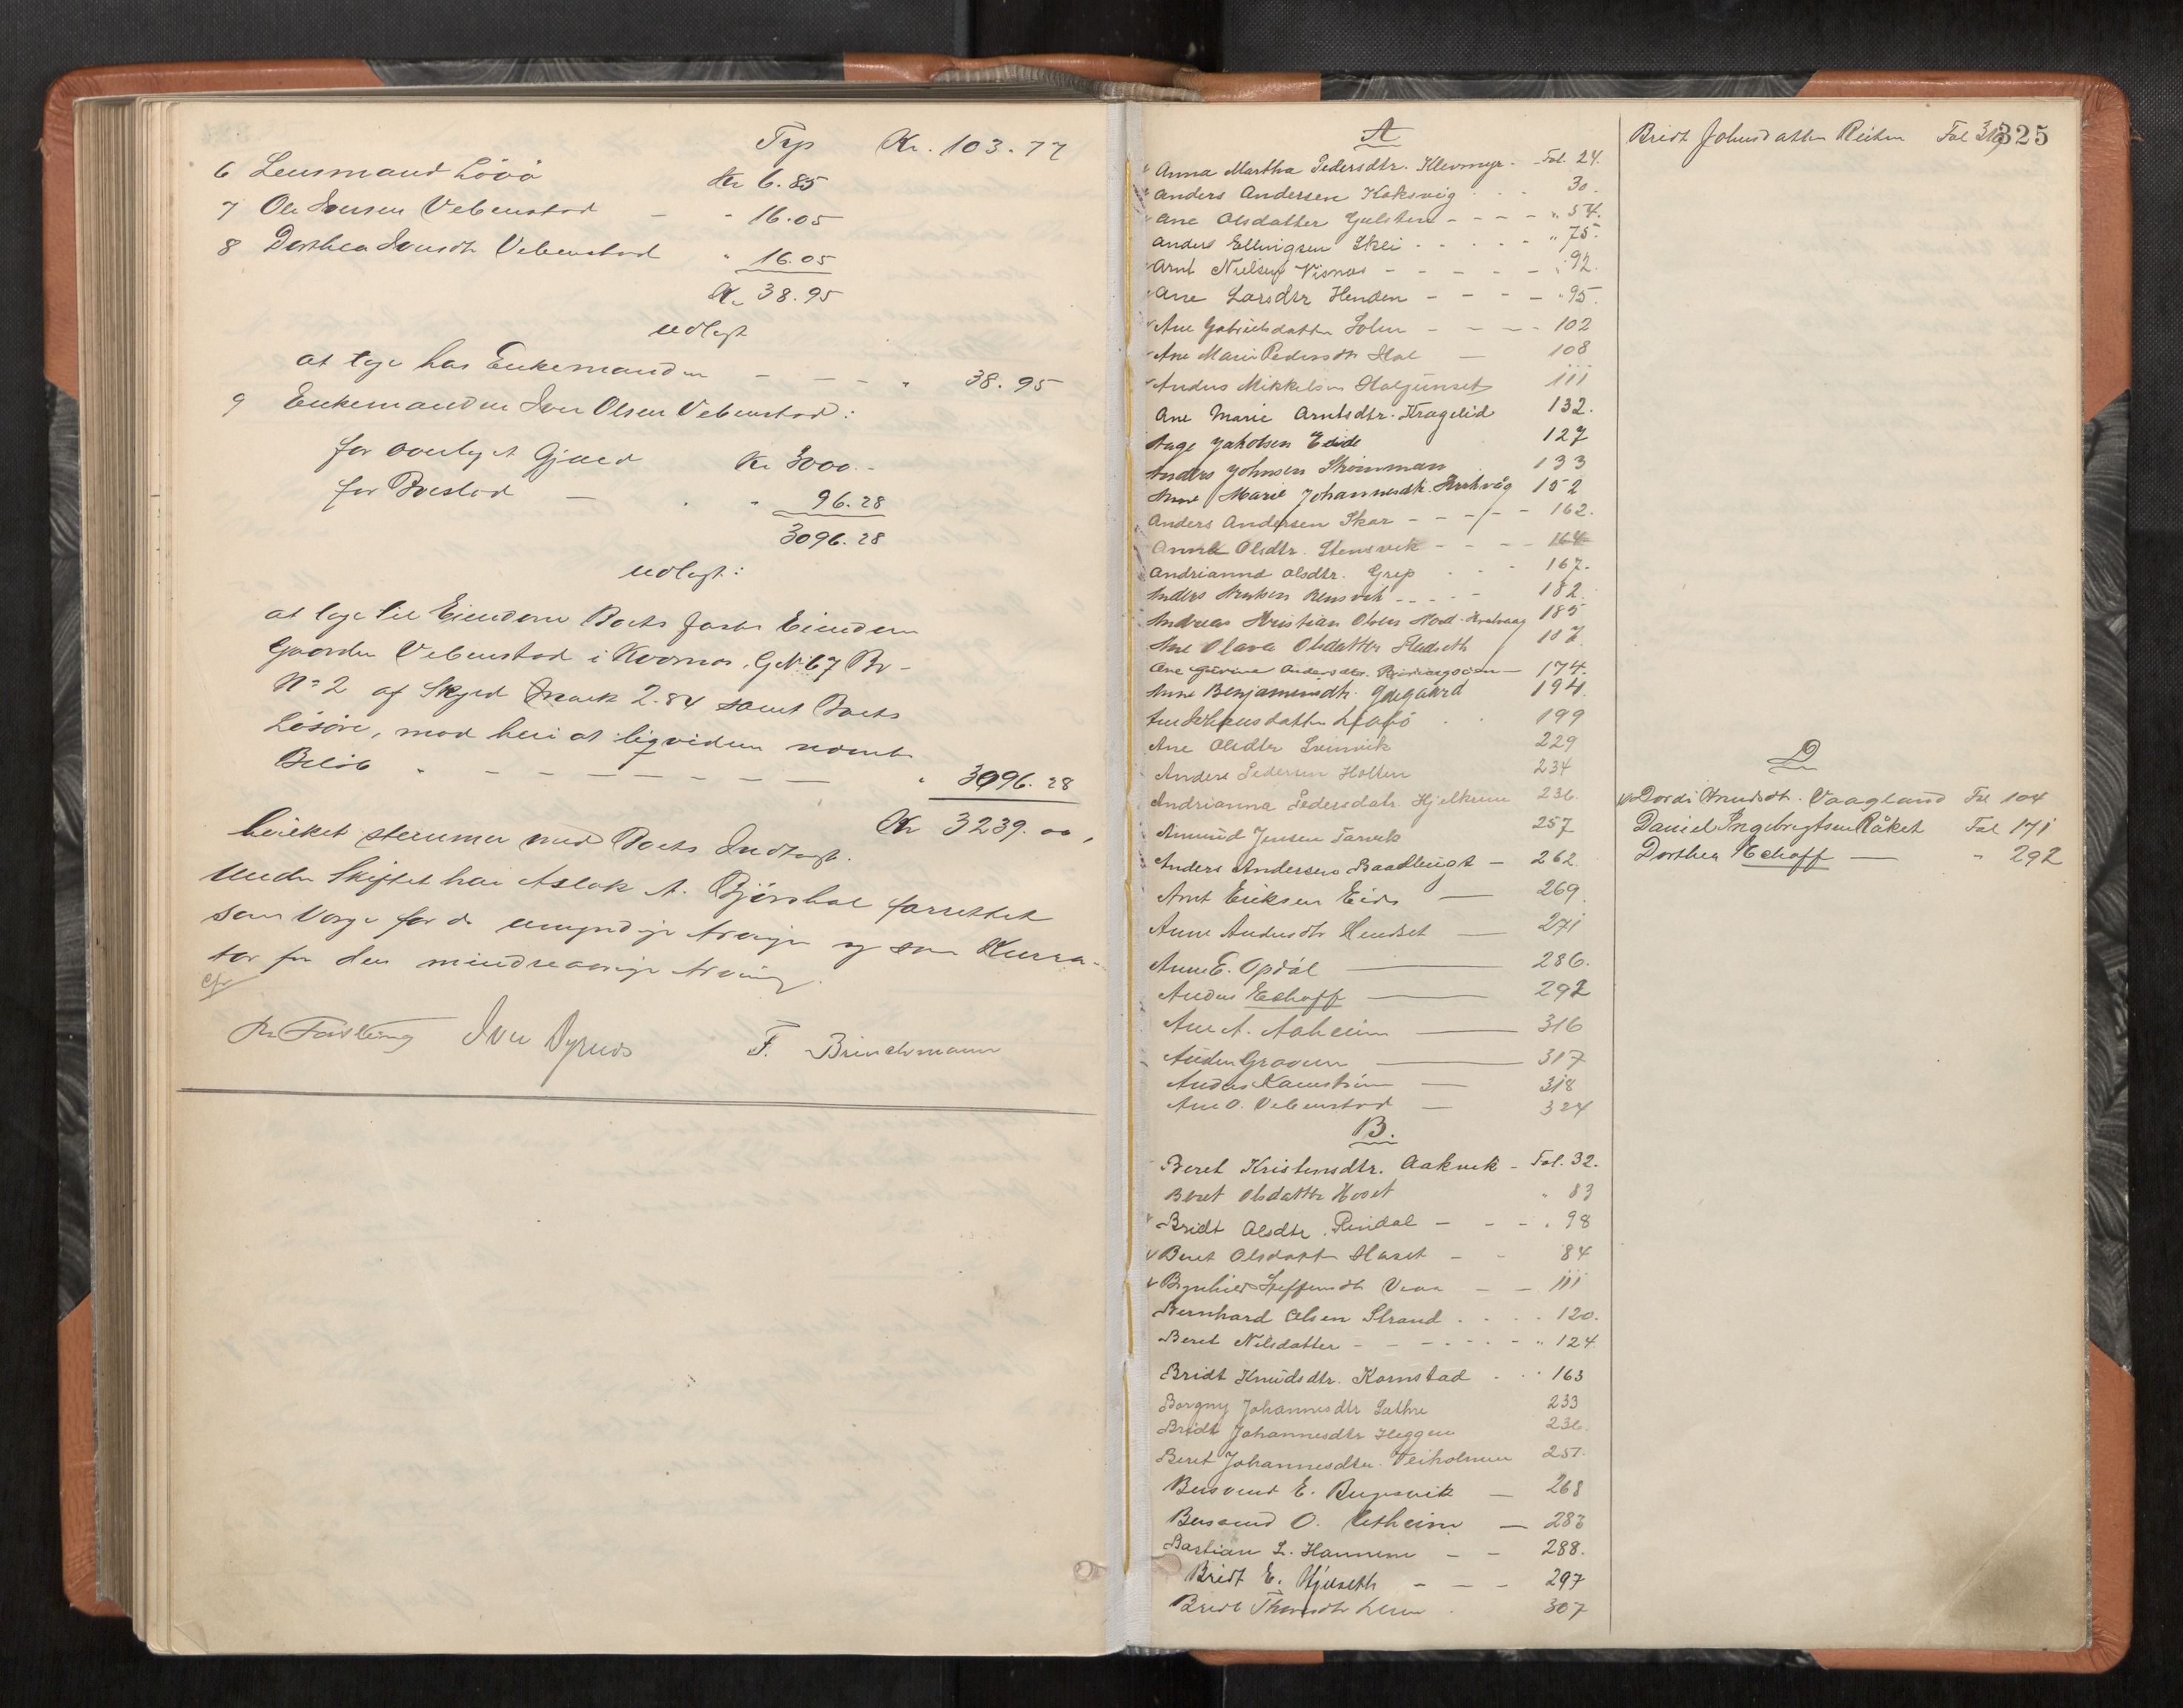 Trp Kr. 103.77
6 Lensmand Lööö Kr 6.85
7 Ole Iversen Vebenstad - - 16.05
8 Dorthea Iversdtr Vebenstad " 16.05
Kr 38.95
Udlagt
at tage hos Enkemanden - - - " 38.95
9 Enkemanden Iver Olsen Vebenstad:
for overtaget Gjæld Kr 3000.-
for Boeslod - " 96.28
3096.28
Udlagt:
at tage til Eiendom Boets faste Eiendom
Gaarden Vebenstad i Kvernes, G.N. 67 Br-
No 2 af Skyld Mark 2.84 samt Boets
Lösöre, mod heri at liqvidere nævnte
Belöb - - - - - - - " 3096.28
Kr 3239.00,
hvilket stemmer med Boets Indtægt.
Under Skiftet har Aslak A. Björshol forrettet
som Verge for de umyndige Arvinger og som Kura-
tor for den mindreaarige Arving.
Iver Vyrnes F. Brinchmann
325
A
Anna Martha Pedersdtr. Klevmyr. - Fol. 24.
Anders Andersen Koksvig . . . 30.
Ane Olsdatter Gulsten - - - - " 54.
Anders Ellingsen Skei . . . . . " 75.
Arnt Nielsen Visnes - - - - - " 92.
Ane Larsdtr Henden - - - - " 95.
Ane Gabrielsdatter Solem - - - - 102
Ane Marie Pedersdtr Hol - 108
Anders Mikkelsen Halgunset 111
Ane Marie Arntsdtr. Kragelid 132.
Aage Jakobsen Eide 127
Anders Johnsen Strömman 133
Anne Marie Johannesdtr. 152
Anders Andersen Skar - - - - - 162.
Anne Olsdtr. Stensvik - - - - 164
Andrianna Olsdtr. Grip . . . 167.
Anders Knutsen Rensvik - - - - 182.
Andreas Kristian Olsen Nord-Kvalvaag 185
Ane Olava Olsdatter Hadseth 187
Ane Gurine Andersdtr. - 174.
Anne Benjaminsdtr. Ödegaard 194.
199
Ane Olsdtr Svinvik 229
Anders Pedersen Holten 234
Andrianna Pedersdatr. Hjelkrem 236.
Amund Jensen Tarvik 257
Anders Andersen Baadlengt - 262.
Arnt Eriksen Eide - 269.
Anne Andersdtr Hendset - 271
Anne E. Opdöl - 286.
Anders Eshoff - 292
Ane A. Aaheim - 316
Auden Graven - 317
Anders Kamström - 318
Ane O. Vebenstad - 324
B.
Beret Kristensdtr. Aakvik - Fol. 32.
Beret Olsdatter Hoset " 83
Bridt Olsdtr. Rindal - - - . 98
Beret Olsdatter Haset - - 84
Brynhild Steffensdtr Vaan - - 111
Bernhard Olsen Strand . . . . 120.
Beret Nilsdatter - - - - - - " 124
Bridt Knudsdtr. Kornstad . . . 163
Borgny Johannesdtr Sæthre 233
Bridt Johannesdtr Heggem 236.
Beret Johannesdtr. Veiholmen 257.
Bersvend E. Bugesvik - 268
Bersvend O. Aetheim - 283
Bastian L. Hannem - - 288.
Bridt E. Hjelseth - - - 297
Bridt 307
Bridt Johnsdatter Reiten Fol 319
D
Dordi Knudsdtr. Vaagland Fol 104
Daniel Ingebrigtsen Råket Fol 171
Dorthea Eshoff - " 292